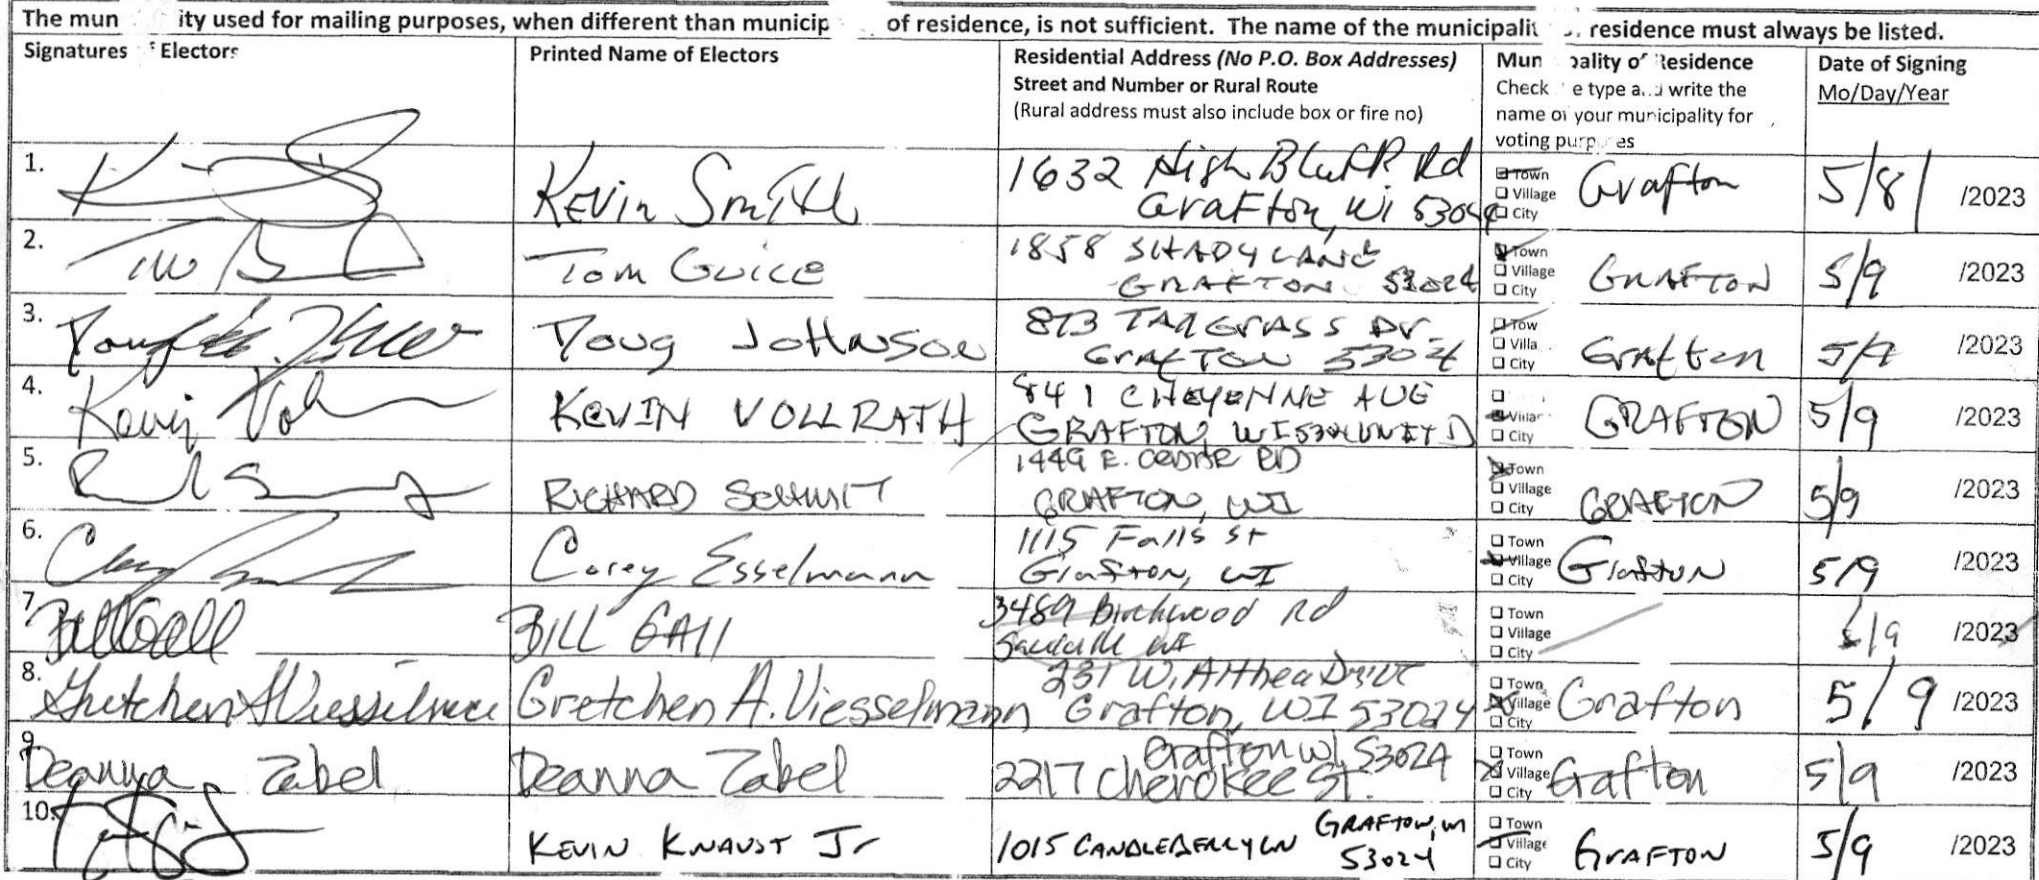 The mun ity used for mailing purposes, when different than municip of residence, is not sufficient. The name of the municipali residence must always be listed.
Signatures f Electors
Printed Name of Electors
Residential Address (No P.O. Box Addresses)
Street and Number or Rural Route
(Rural address must also include box or fire no)
Mun pality of Residence
Check e type a d write the
name of your municipality for
voting purp es
Date of Signing
Mo/Day/Year
1.
Kevin Smith
1632 High Bluff Rd
Grafton, WI 53024
Town
Village
City
Grafton
5/8/ /2023
2.
Tom Guice
1858 SHADY LANE
GRAFTON 53024
Town
Village
City
GRAFTON
5/9 /2023
3.
Doug Johnson
GRAFTON 53024
Tow
Villa
City
Grafton
/2023
4.
Kevin
KEVIN VOLLRATH
841 CHEYENNE AVE
GRAFTON, WI 53024 UNIT D
Villag
City
GRAFTON
5/9 /2023
5.
RICHARD SCHMIT
1449 E. RD
GRAFTON, WI
Town
Village
City
GRAFTON
5/9 /2023
6.
Corey Esselmann
1115 Falls St
Grafton, WI
Town
Village
City
Grafton
5/9 /2023
7.
Bill Gall
BILL GALL
3489 Birchwood Rd
Saukville WI
Town
Village
City
5/9 /2023
8.
Gretchen A Viesselmann
Gretchen A. Viesselmann
231 W. Althea Drive
Grafton, WI 53024
Town
Village
City
Grafton
5/9 /2023
9.
Deanna Zabel
Deanna Zabel
Grafton WI 53024
2217 Cherokee St.
Town
Village
City
Grafton
5/9 /2023
10.
KEVIN KNAUST Jr
1015 CANDLEBERRY LN GRAFTON, WI
53024
Town
Village
City
GRAFTON
5/9 /2023